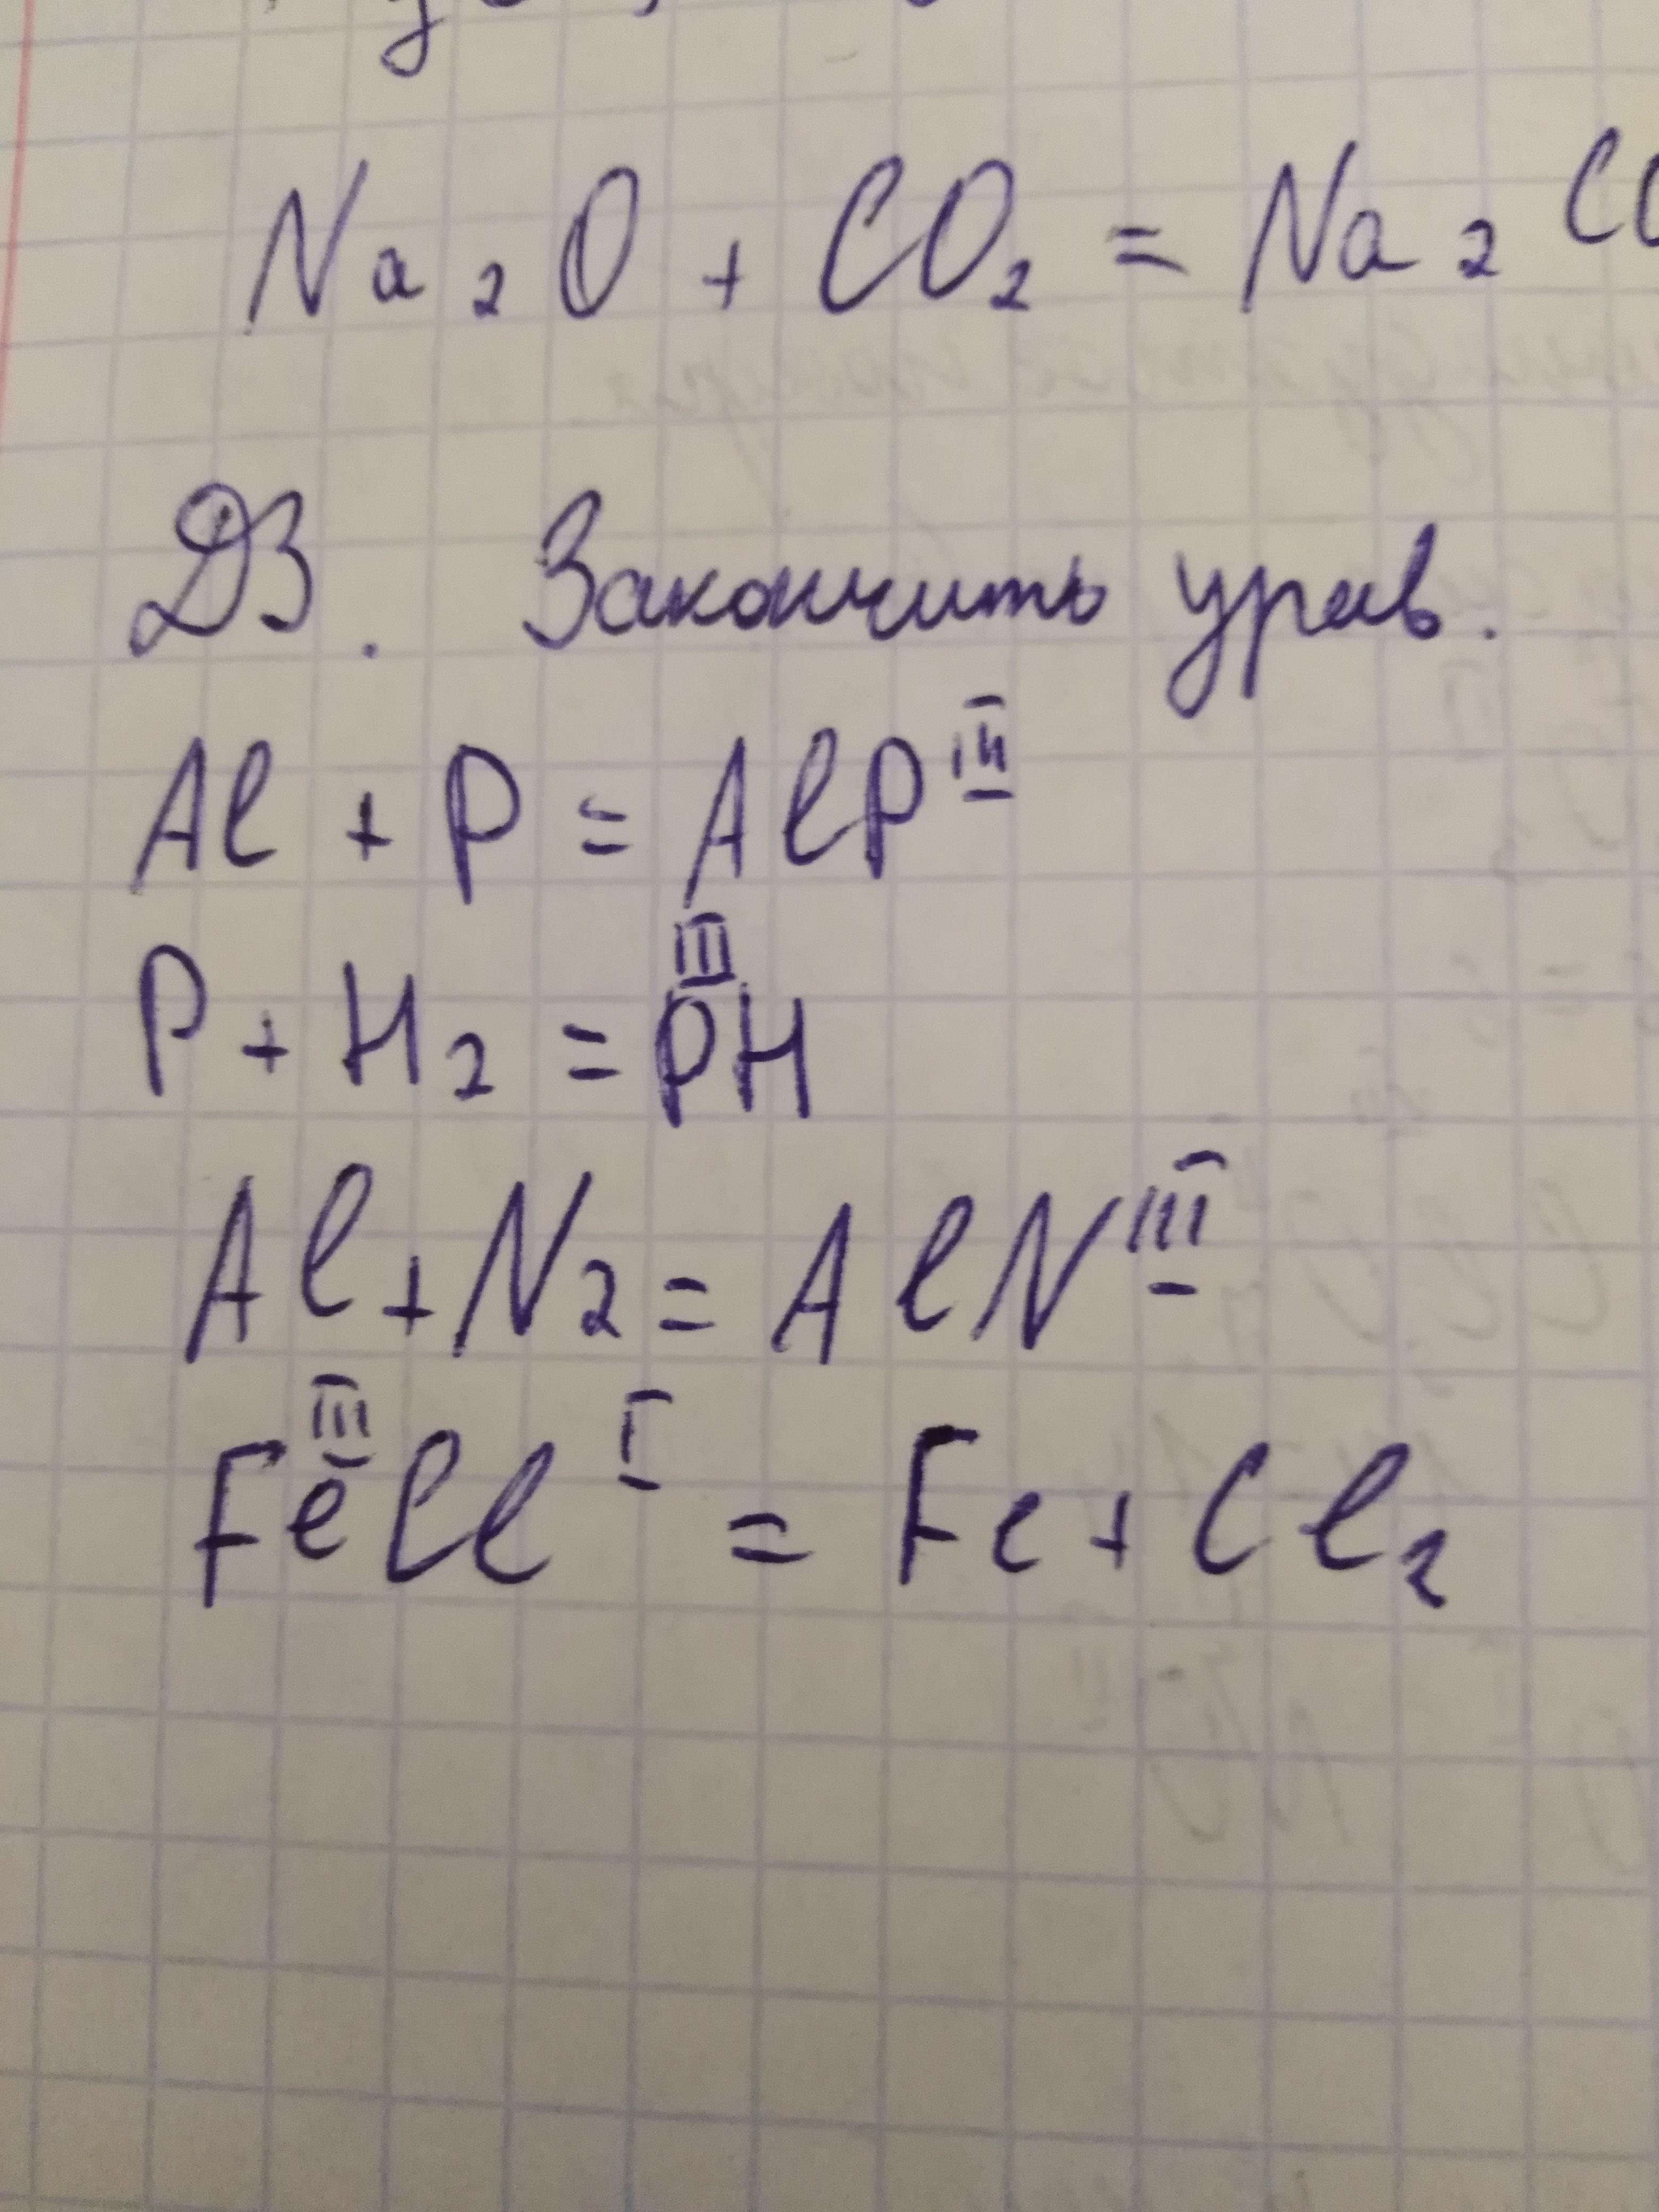 Na₂O + CO₂ = Na₂CO
ДЗ. Закончить урав.
Al + P = AlP^III
P + H₂ = P^III H
Al + N₂ = AlN^III
Fe^III Cl^I = Fe + Cl₂